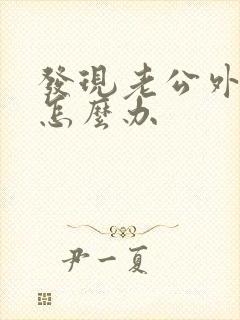 發現老公外
怎麼办
尹一夏